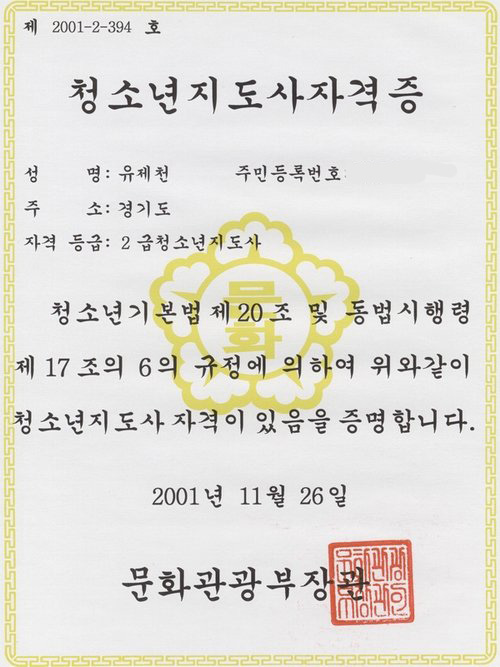 제 2001-2-394 호
청소년지도사자격증
성 명: 유제천 주민등록번호:
주 소: 경기도
자격 등급: 2 급청소년지도사
문화
청소년기본법 제 20 조 및 동법시행령
제 17 조의 6의 규정에 의하여 위와같이
청소년지도사 자격이 있음을 증명합니다.
2001년 11월 26일
문화관광부장관